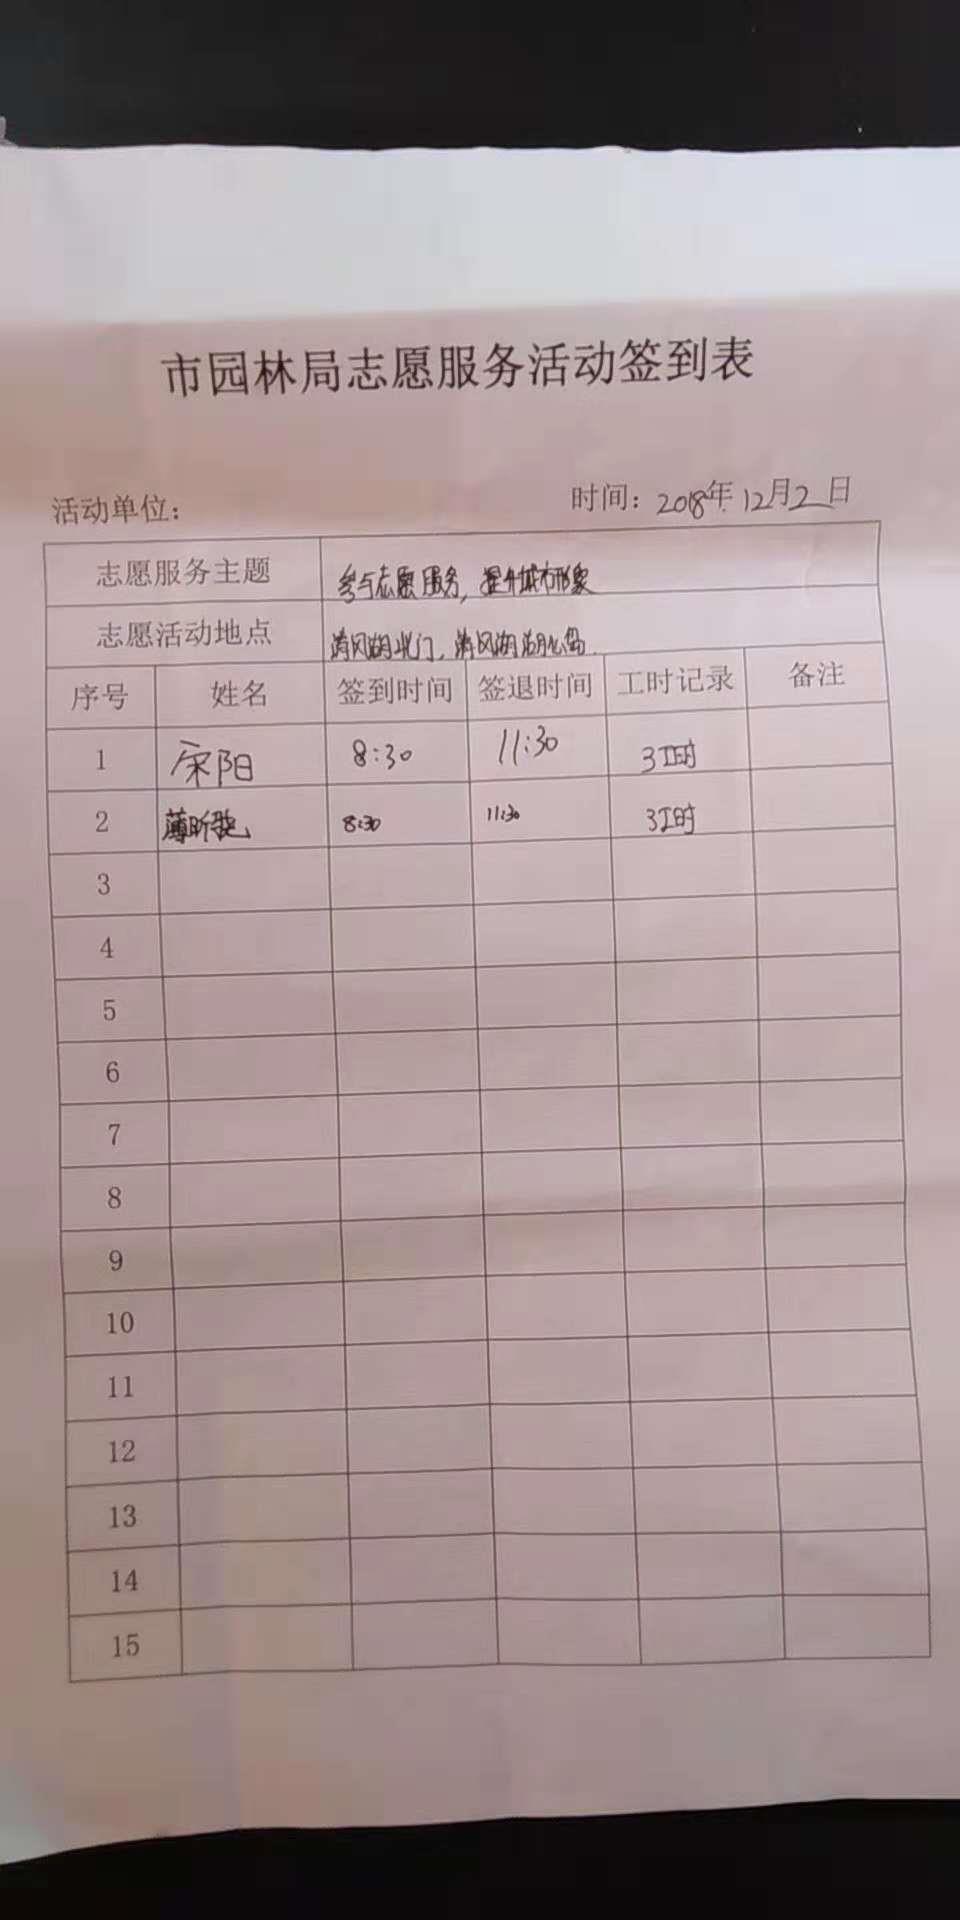 市园林局志愿服务活动签到表
活动单位: 时间: 2018年12月2日
志愿服务主题 参与志愿服务,提升城市形象
志愿活动地点 清风湖北门,清风湖湖心岛.
序号 姓名 签到时间 签退时间 工时记录 备注
1 宋阳 8:30 11:30 3工时
2 薄昕 8:30 11:30 3工时
3
4
5
6
7
8
9
10
11
12
13
14
15